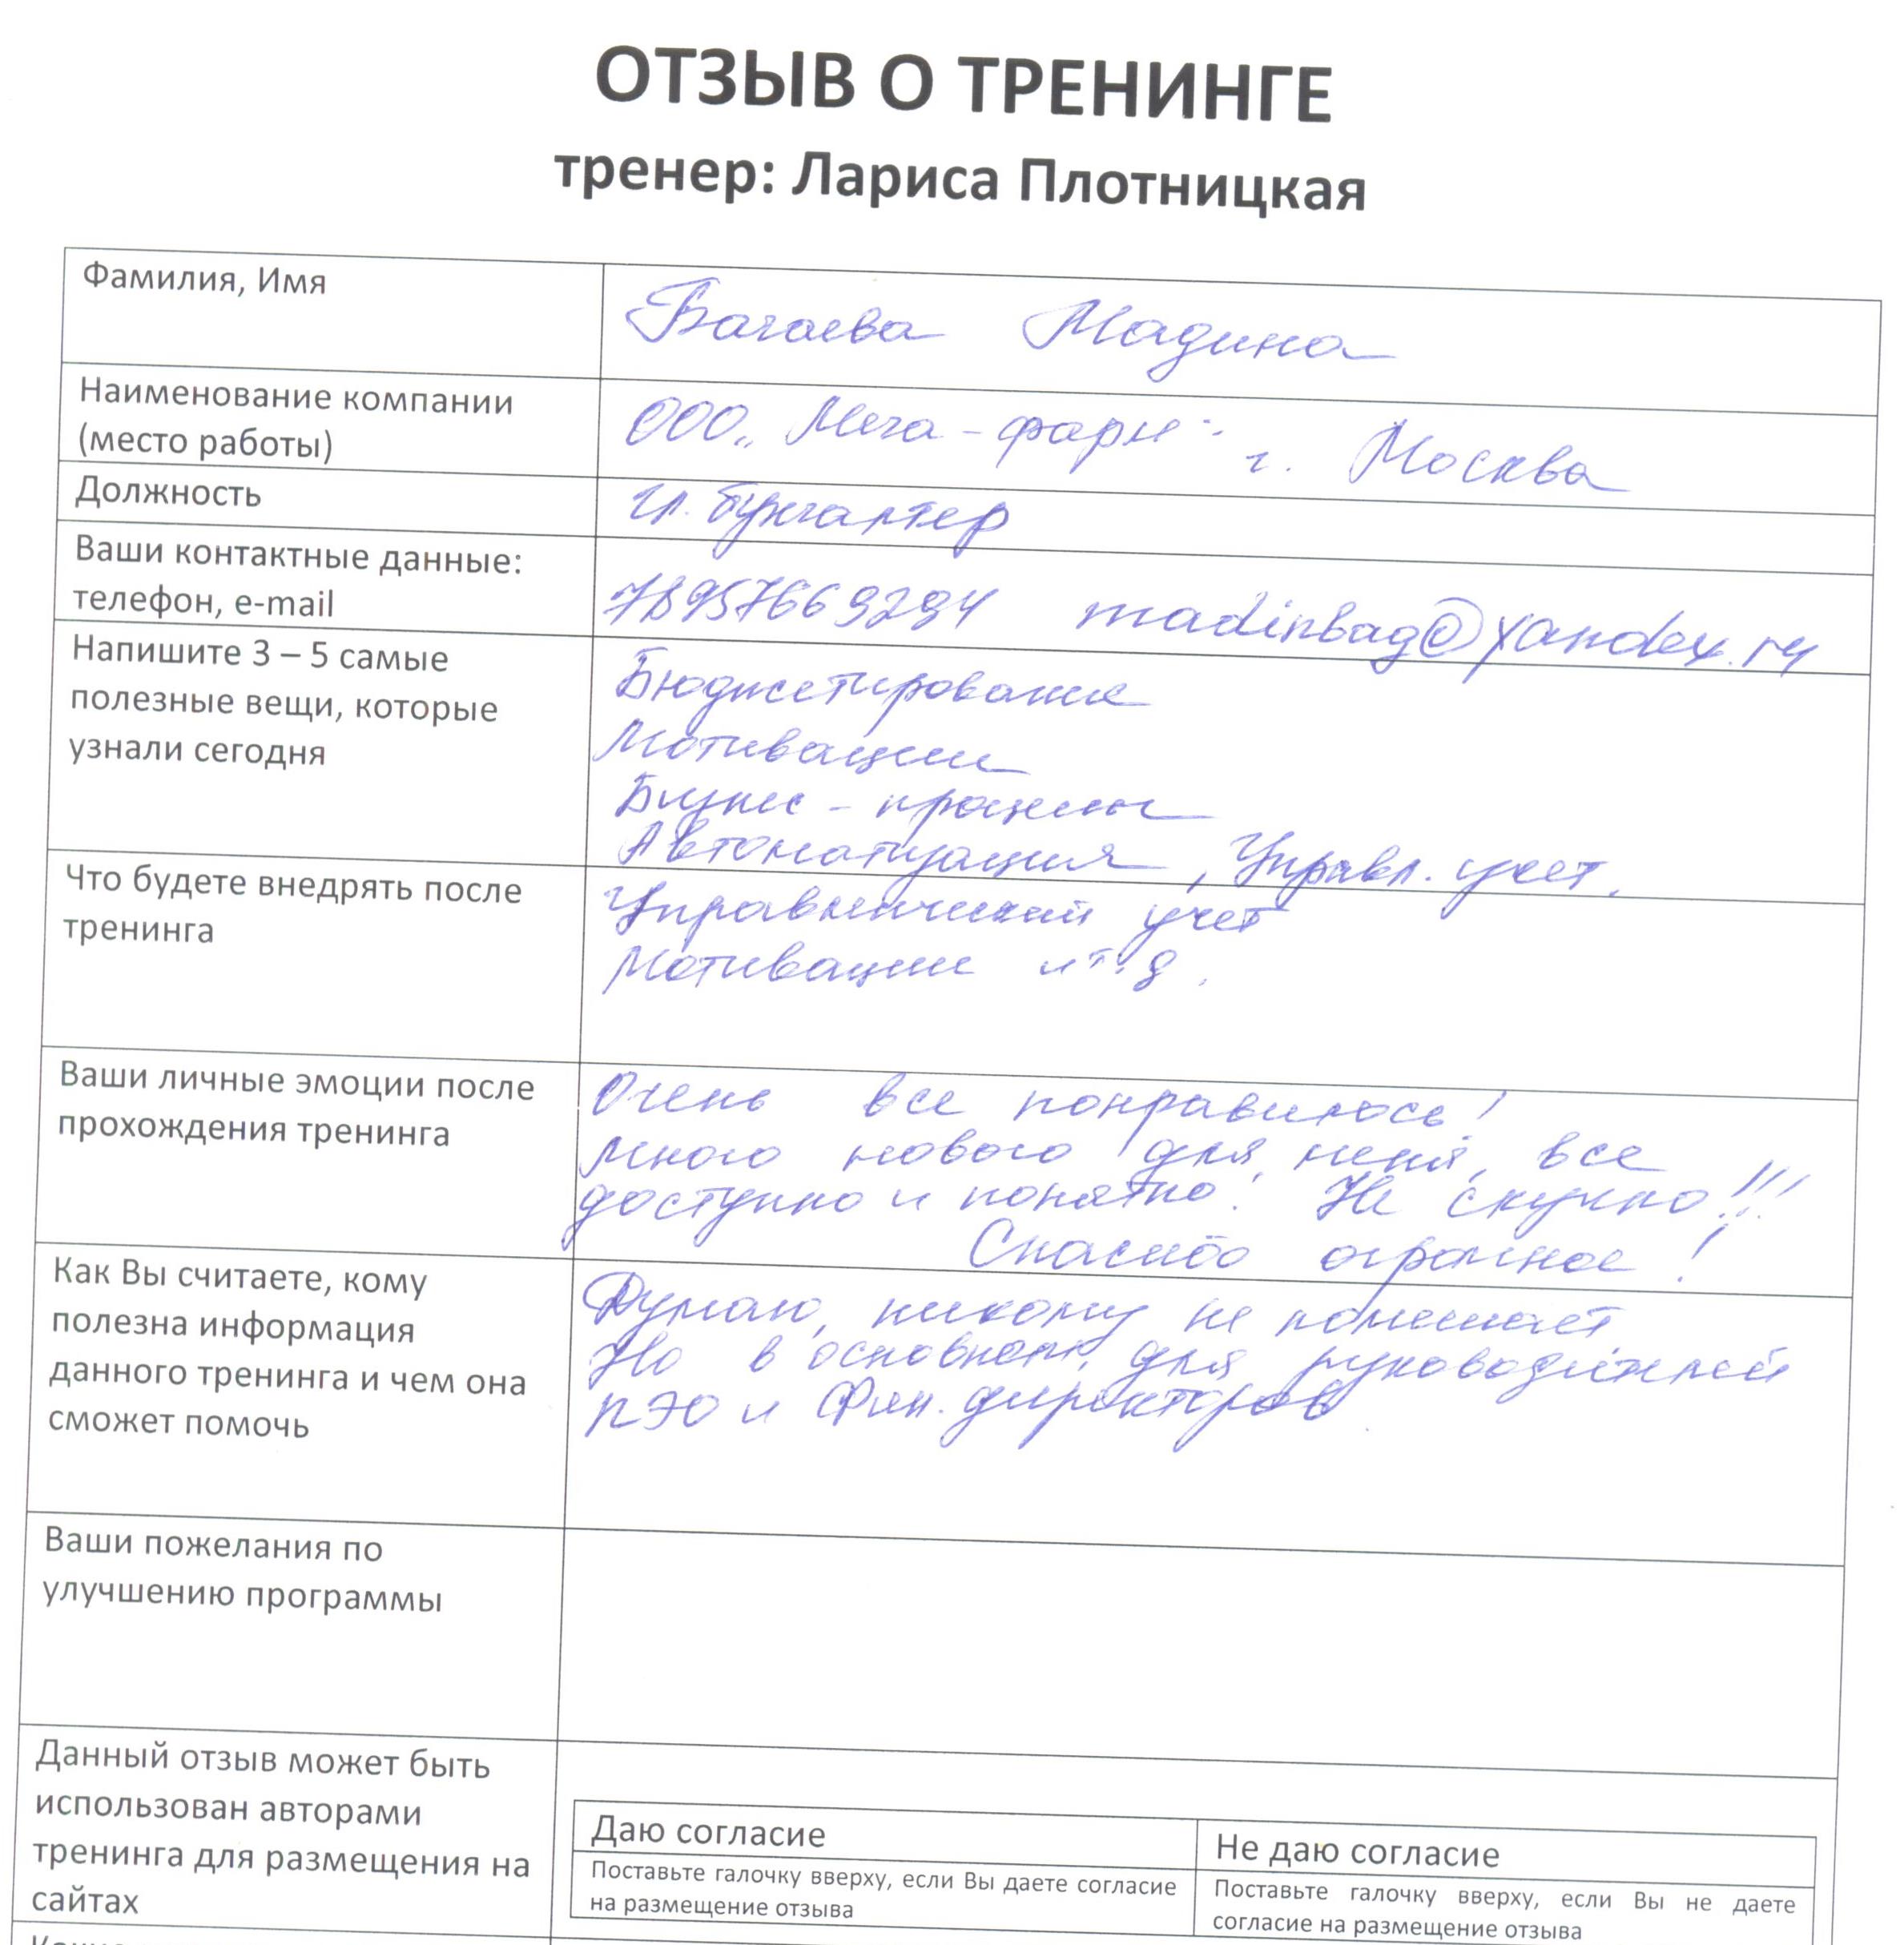 ОТЗЫВ О ТРЕНИНГЕ
тренер: Лариса Плотницкая
Фамилия, Имя
Багаева Мадина
Наименование компании
(место работы)
ООО „Мега-фарм" г. Москва
Должность
гл. бухгалтер
Ваши контактные данные:
телефон, e-mail
madinbag@yandex.ru
Напишите 3 – 5 самые
полезные вещи, которые
узнали сегодня
Бюджетирование
Мотивации
Бизнес - процессы
Автоматизация, Управл. учет.
Что будете внедрять после
тренинга
Управленческий учет
Мотивации и т.д.
Ваши личные эмоции после
прохождения тренинга
Очень все понравилось!
Много нового для меня, все
доступно и понятно! Не скучно!!!
Спасибо огромное!
Как Вы считаете, кому
полезна информация
данного тренинга и чем она
сможет помочь
Думаю, никому не помешает
Но в основном, для руководителей
ПЭО и Фин. директоров
Ваши пожелания по
улучшению программы
Данный отзыв может быть
использован авторами
тренинга для размещения на
сайтах
Даю согласие
Поставьте галочку вверху, если Вы даете согласие
на размещение отзыва
Не даю согласие
Поставьте галочку вверху, если Вы не даете
согласие на размещение отзыва